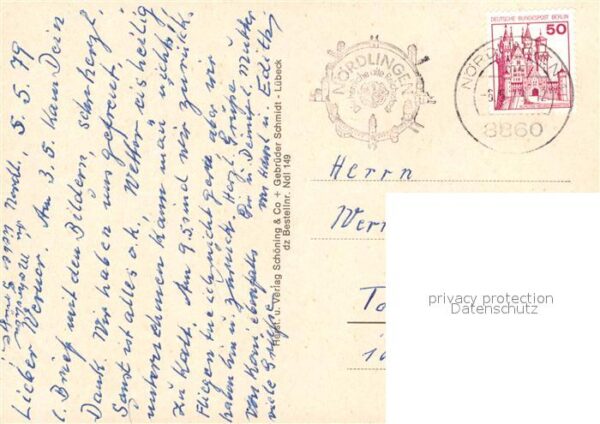 Nördl. 5.5.79
Lieber Werner. Am 3.5. kam Dein
l. Brief mit den Bildern, sehr herzl.
Dank. Wir haben uns gefreut.
Sonst ist alles o.k. Wetter eisheilig
unternehmen kann man nichts,
zu kalt. Am 9.5. sind wir zurück.
Fliegen tue ich nicht gern aber wir
hin u. zurück. Herzl. Grüße
Dir u. Deiner l. Mutter
von Koni ebenfalls Harl u. Edith
viele Grüße
Horst u. Verlag Schöning & Co + Gebrüder Schmidt - Lübeck
dz Bestellnr. Ndl 149
NÖRDLINGEN
DEUTSCHE BUNDESPOST BERLIN
50
NÖRDLINGEN
8860
Herrn
privacy protection
Datenschutz